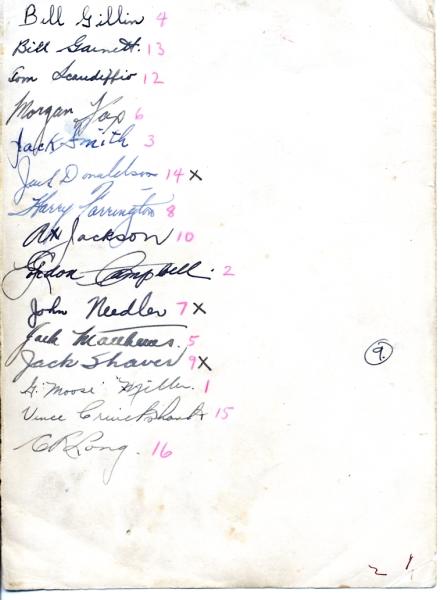 Bill Gillin 4
Bill Garnett. 13
Tom Scandiffio 12
Morgan Fox 6
Jack Smith 3
Jack Donaldson 14 x
Harry Farrington 8
Art Jackson 10
Gordon Campbell. 2
John Needler 7 x
Jack Matthews. 5
9.
Jack Shaver 9 x
G. "Moose" Miller. 1
Vince Cruickshank 15
C R Long. 16
2 1